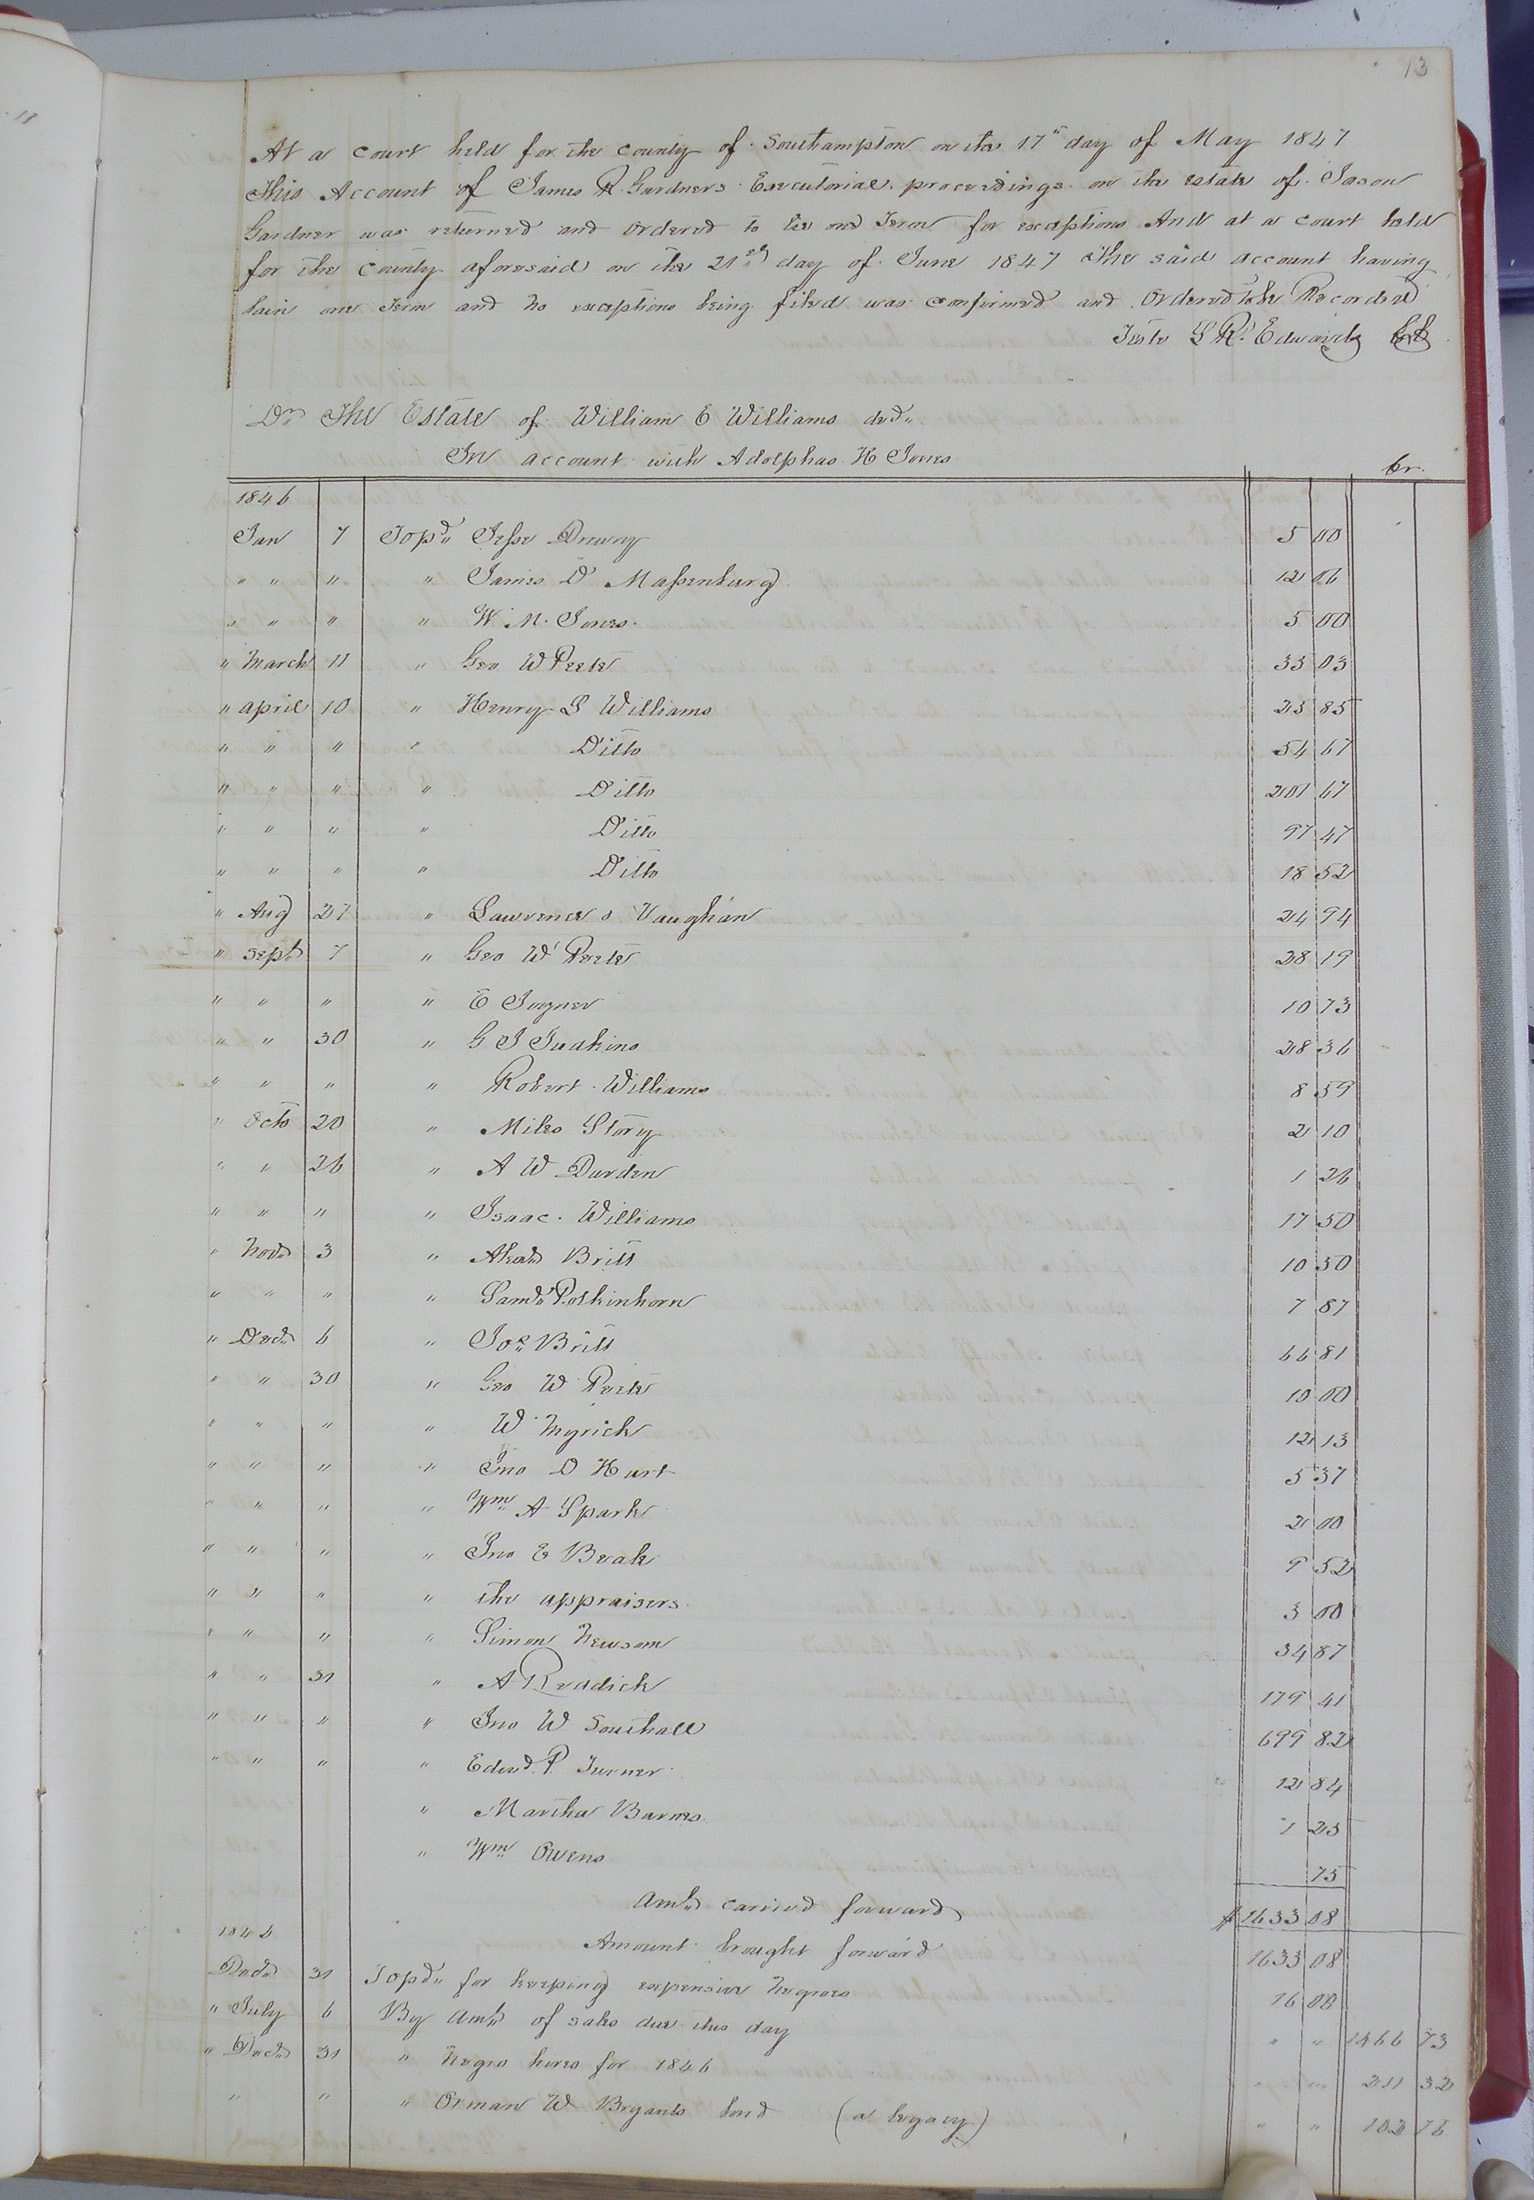 13
At a court held for the county of Southampton on the 17" day of May 1847
This Account of James R. Gardners Executorial proceedings on the estate of Jason
Gardner was returned and Ordered to lie one Term for exceptions And at a court held
for the county aforesaid on the 21st day of June 1847 The said account having
lain one Term and no exceptions being filed was confirmed and Ordered to be Recorded
Teste L R. Edwards Clk
Dr The Estate of William E Williams decd.
In account with Adolphus H Jones
Cr.
1846
Jan 7 To pd. Jesse Drewry 5 00
" " " " James D Massenburg 12 06
" " " " W. M. Jones 5 00
" March 11 " Geo W Peete 33 03
" April 10 " Henry L Williams 23 85
" " " " Ditto 54 67
" " " " Ditto 201 67
" " " " Ditto 97 47
" " " " Ditto 18 52
" Aug 27 " Lawrence & Vaughan 24 94
" Sept 7 " Geo W Peete 28 19
" " " " E Joyner 10 73
" " 30 " G J Judkins 28 36
" " " " Robert Williams 8 59
" Octo 20 " Miles Story 2 10
" " 26 " A W Darden 1 26
" " " " Isaac Williams 17 50
" Nov. 3 " Britt 10 50
" " " " Saml. 7 87
" Dec. 6 " Jos. Britt 66 81
" " 30 " Geo W Peete 10 00
" " " " W Myrick 12 13
" " " " Jno D Hart 5 37
" " " " Wm A Spark 2 00
" " " " Jno E Beale 9 52
" " " " the appraisers 3 00
" " " " Simon Newsom 34 87
" " 31 " A Reddick 179 41
" " " " Jno W Southall 699 82
" " " " Edwd. P. Turner 12 84
" Martha Barnes 1 25
" Wm Owens 75
Amt. carried forward $1633 08
1846 Amount brought forward 1633 08
Dec. 31 To pd. for keeping expensive Negroes 16 00
" July 6 By Amt. of sales due this day " " 1466 73
" Dec. 31 " Negro hires for 1846 " " 211 32
" " " Orman W Bryants bond (a legacy) " " 102 76